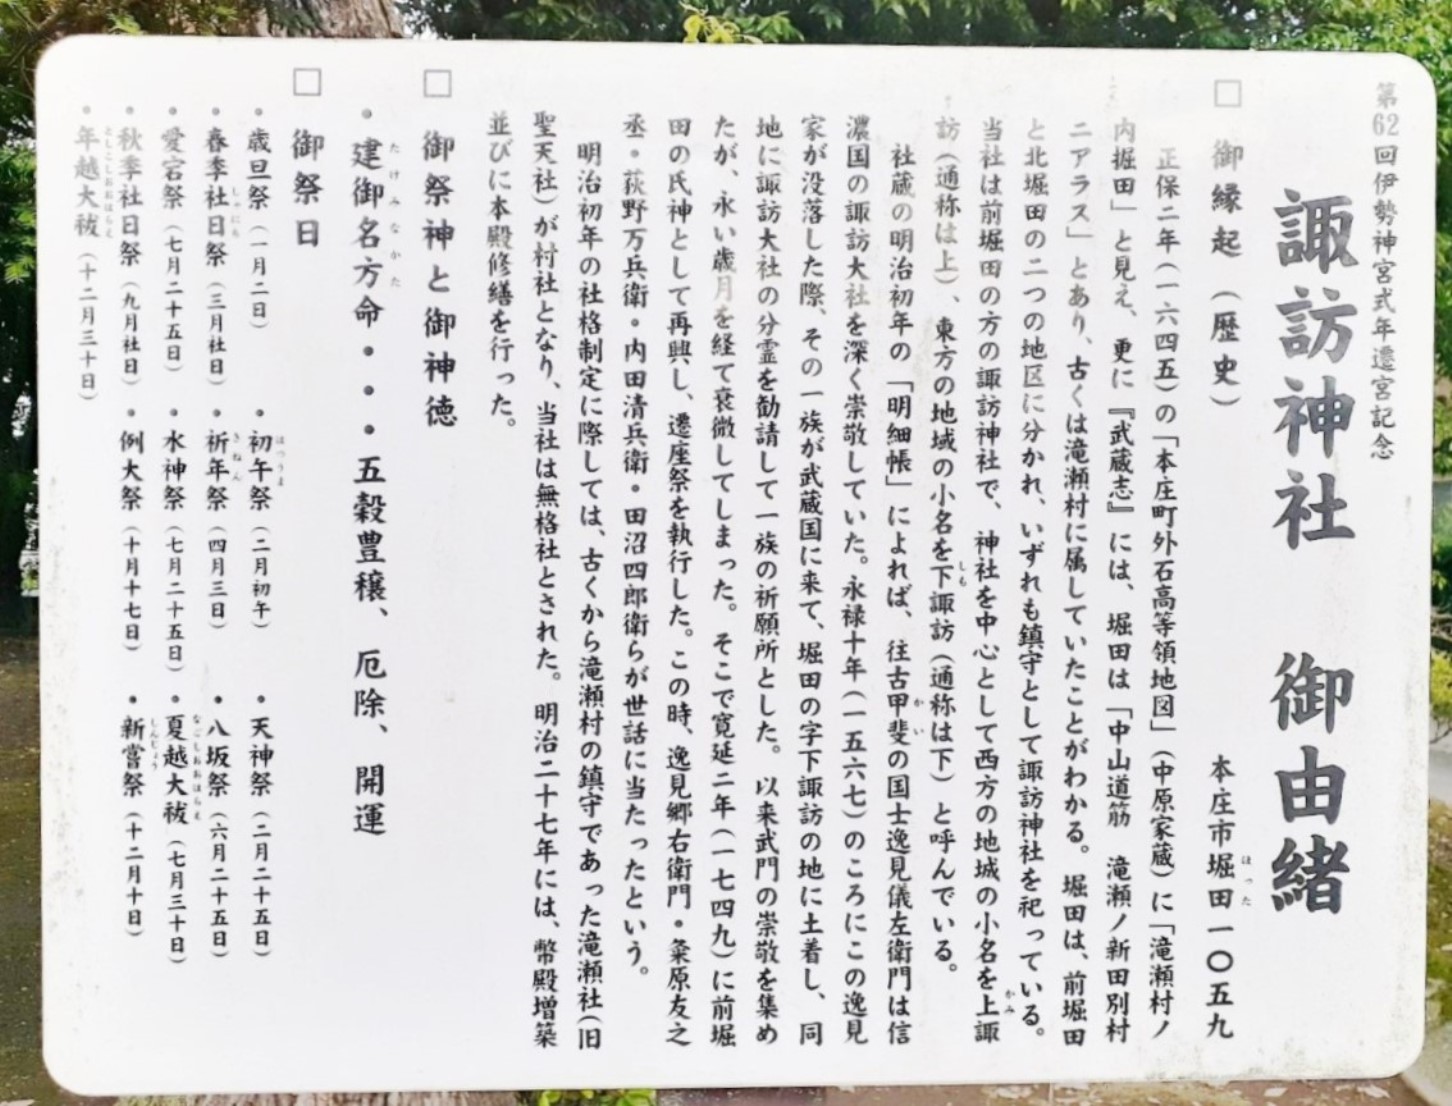 第62回伊勢神宮式年遷宮記念
諏訪神社　御由緒
本庄市堀田一〇五九
ほった
□ 御縁起（歴史）
正保二年（一六四五）の「本庄町外石高等領地図」（中原家蔵）に「滝瀬村ノ
内掘田」と見え、更に『武蔵志』には、堀田は「中山道筋　滝瀬ノ新田別村
ニアラス」とあり、古くは滝瀬村に属していたことがわかる。堀田は、前堀田
と北堀田の二つの地区に分かれ、いずれも鎮守として諏訪神社を祀っている。
当社は前堀田の方の諏訪神社で、神社を中心として西方の地城の小名を上諏
かみ
訪（通称は上）、東方の地域の小名を下諏訪（通称は下）と呼んでいる。
しも
社蔵の明治初年の「明細帳」によれば、往古甲斐の国士逸見儀左衛門は信
かい
濃国の諏訪大社を深く崇敬していた。永禄十年（一五六七）のころにこの逸見
家が没落した際、その一族が武蔵国に来て、堀田の字下諏訪の地に土着し、同
地に諏訪大社の分霊を勧請して一族の祈願所とした。以来武門の崇敬を集め
たが、永い歳月を経て衰微してしまった。そこで寛延二年（一七四九）に前堀
田の氏神として再興し、遷座祭を執行した。この時、逸見郷右衛門・粂原友之
丞・荻野万兵衛・内田清兵衛・田沼四郎衛らが世話に当たったという。
明治初年の社格制定に際しては、古くから滝瀬村の鎮守であった滝瀬社（旧
聖天社）が村社となり、当社は無格社とされた。明治二十七年には、幣殿増築
並びに本殿修繕を行った。
□ 御祭神と御神徳
・建御名方命・・・五穀豊穣、厄除、開運
たけみなかた
□ 御祭日
・歳旦祭（一月二日）　・初午祭（二月初午）　・天神祭（二月二十五日）
はつうま
・春季社日祭（三月社日）　・祈年祭（四月三日）　・八坂祭（六月二十五日）
しゃにち　きねん
・愛宕祭（七月二十五日）　・水神祭（七月二十五日）　・夏越大祓（七月三十日）
なごしおおはらえ
・秋季社日祭（九月社日）　・例大祭（十月十七日）　・新嘗祭（十二月十日）
しんじょう
・年越大祓（十二月三十日）
としこしおおはらえ